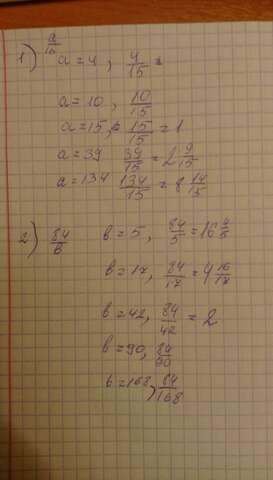 1) a/15
a = 4, 4/15 =
a = 10, 10/15
a = 15, 15/15 = 1
a = 39 39/15 = 2 9/15
a = 134 134/15 = 8 14/15
2) 84/b b = 5, 84/5 = 16 4/5
b = 17, 84/17 = 4 16/17
b = 42, 84/42 = 2
b = 90, 84/90
b = 168, 84/168